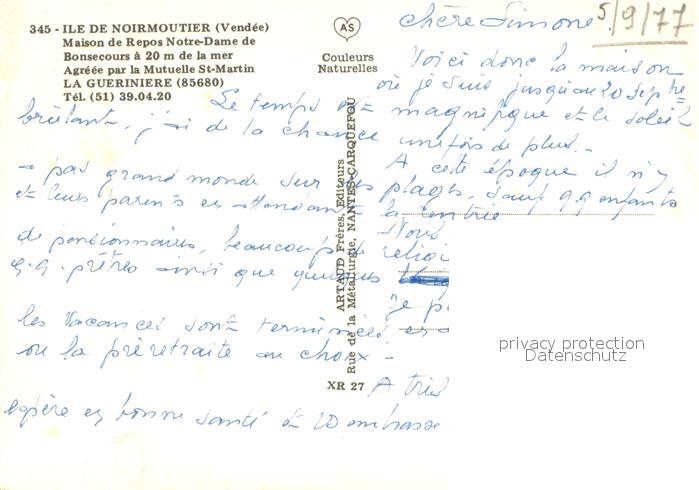 345 - ILE DE NOIRMOUTIER (Vendée)
Maison de Repos Notre-Dame de
Bonsecours à 20 m de la mer
Agréée par la Mutuelle St-Martin
LA GUERINIERE (85680)
Tél. (51) 39.04.20
AS
Couleurs
Naturelles
5/9/77
chère Simone
Voici donc la maison
où je suis jusqu'au 20 septbre
Le temps est magnifique et le soleil
brûlant, j'ai de la chance une fois de plus. -
A cette époque il n'y
a pas grand monde sur les plages, sauf qq enfants
et leurs parents en attendant la rentrée
Nous
de pensionnaires, beaucoup de
q.q. prêtres ainsi que quelques
Je
les vacances sont terminées, et
ou la préretraite au choix -
A
espère en bonne santé et
ARTAUD Frères, Editeurs
Rue de la Métallurgie, NANTES-CARQUEFOU
XR 27
privacy protection
Datenschutz